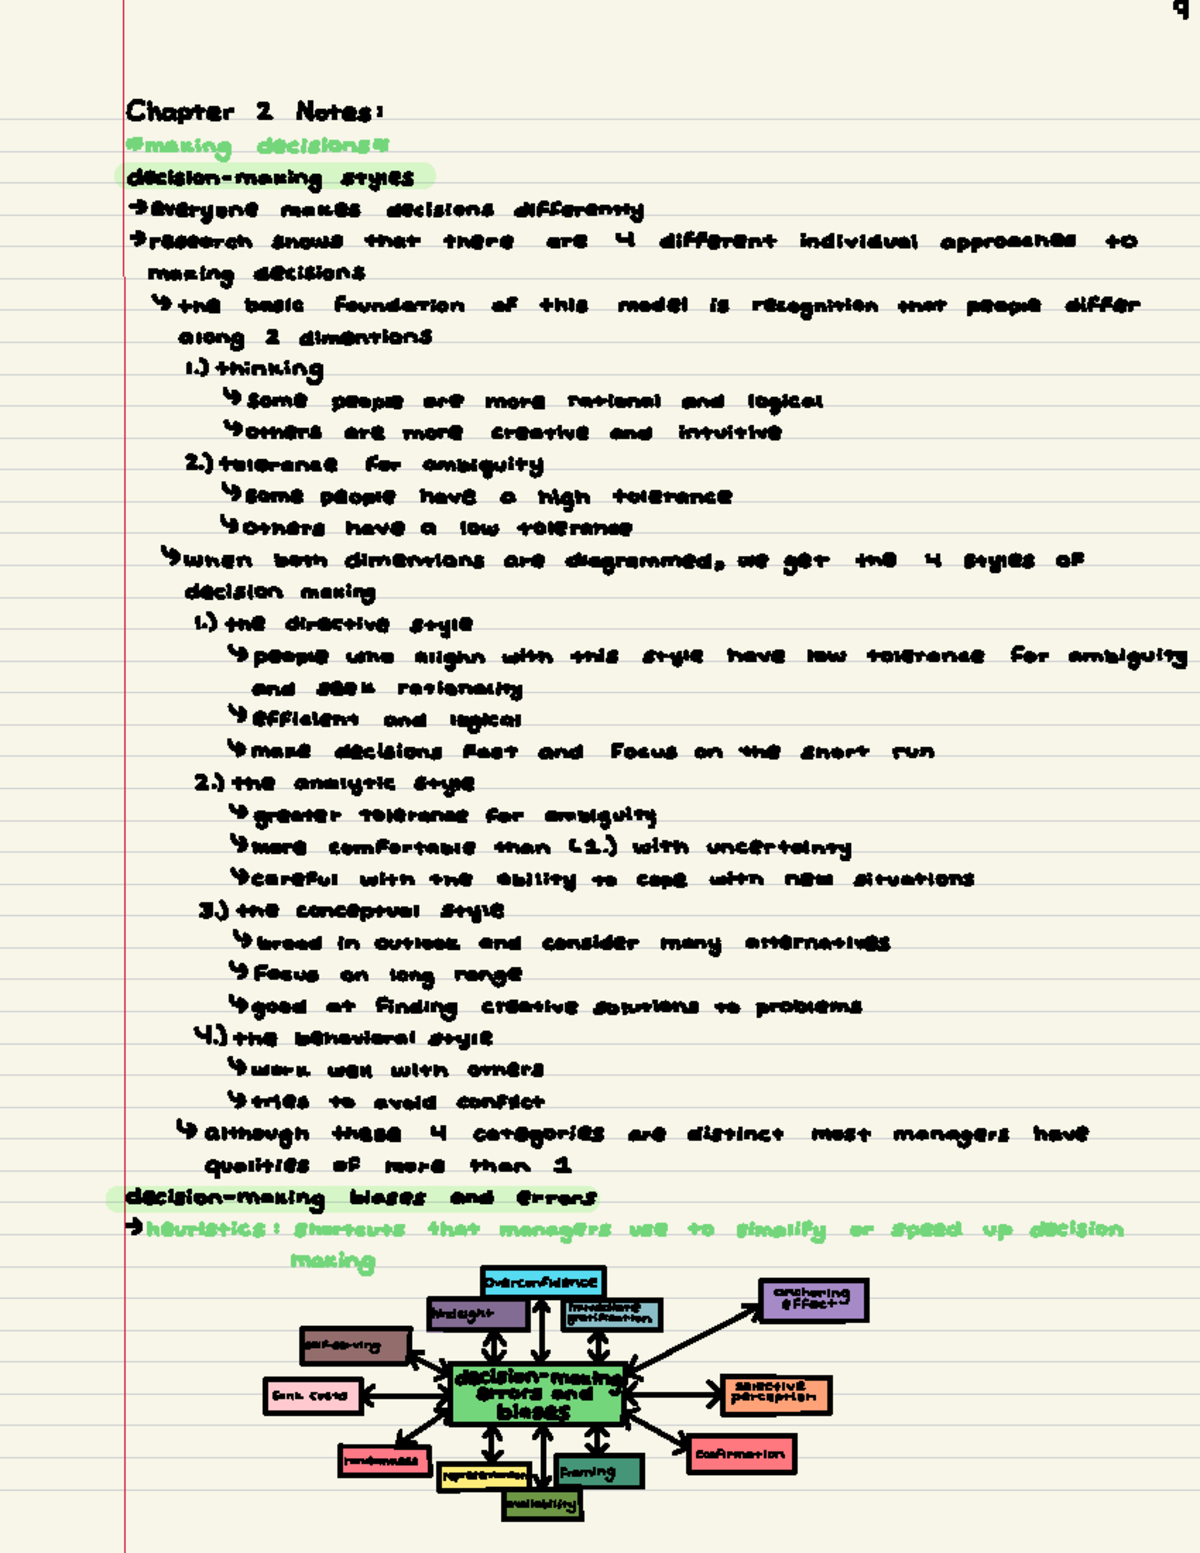 9
Chapter 2 Notes:
*making decisions*
decision-making styles
→everyone makes decisions differently
→research shows that there are 4 different individual approaches to
making decisions
↳the basic foundation of this model is recognition that people differ
along 2 dimentions
1.) thinking
↳some people are more rational and logical
↳others are more creative and intuitive
2.) tolerance for ambiguity
↳some people have a high tolerance
↳others have a low tolerance
↳when both dimentions are diagrammed, we get the 4 styles of
decision making
1.) the directive style
↳people who alighn with this style have low tolerance for ambiguity
and seek rationality
↳efficient and logical
↳make decisions fast and focus on the short run
2.) the analytic style
↳greater tolerance for ambiguity
↳more comfortable than (1.) with uncertainty
↳careful with the ability to cope with new situations
3.) the conceptual style
↳broad in outlook and consider many alternatives
↳focus on long range
↳good at finding creative solutions to problems
4.) the behavioral style
↳work well with others
↳tries to avoid conflict
↳although these 4 categories are distinct most managers have
qualities of more than 1
decision-making biases and errors
→heuristics: shortcuts that managers use to simplify or speed up decision
making
overconfidence
hindsight
immediate
gratification
anchoring
effect
self-serving
decision-making
errors and
biases
sunk costs
selective
perception
randomness
representation
framing
confirmation
availability